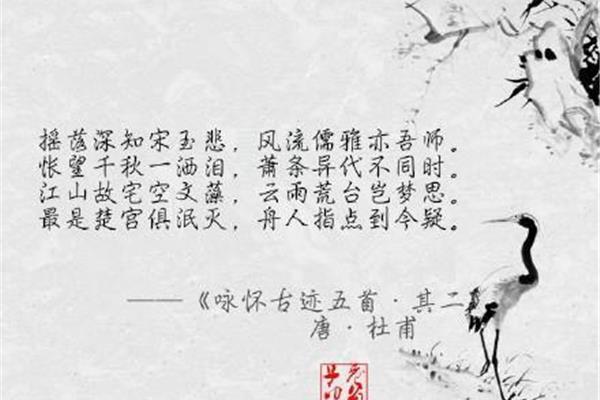 摇落深知宋玉悲，风流儒雅亦吾师。
怅望千秋一洒泪，萧条异代不同时。
江山故宅空文藻，云雨荒台岂梦思。
最是楚宫俱泯灭，舟人指点到今疑。
——《咏怀古迹五首·其二》
唐·杜甫